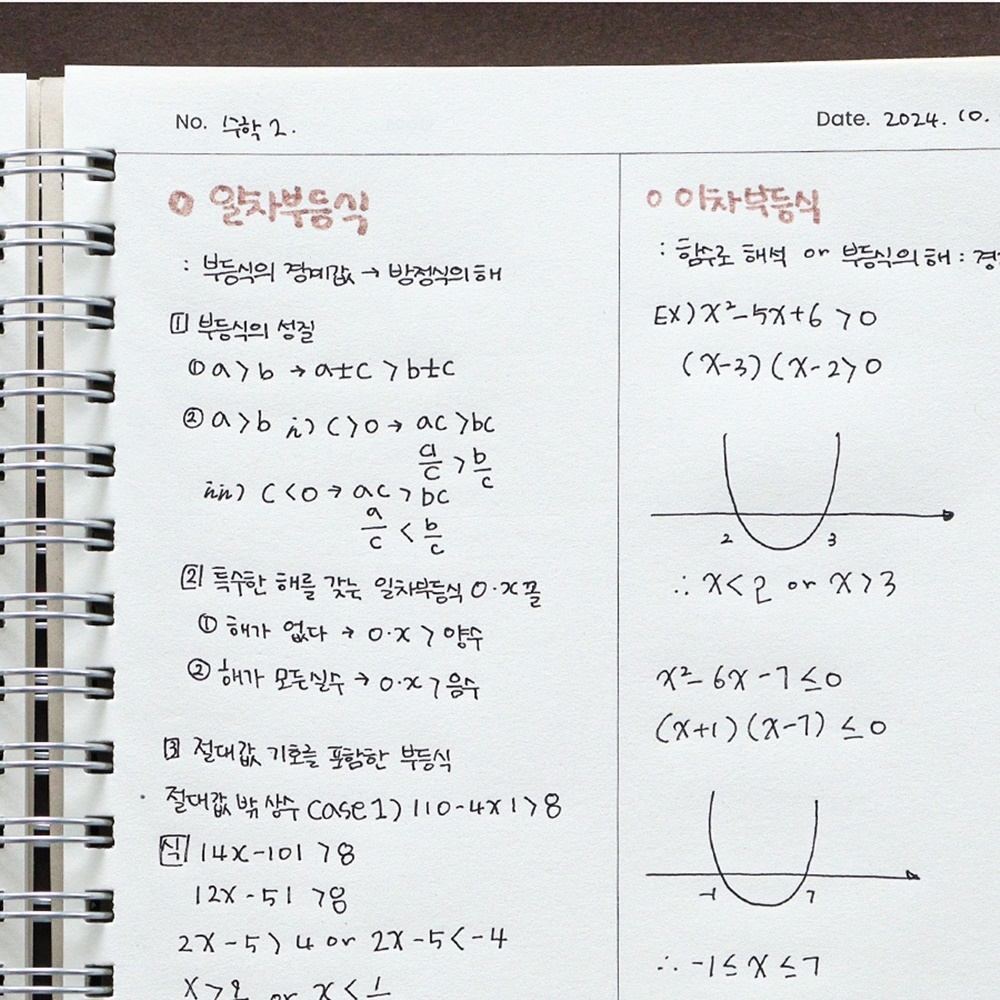 No. 수학 2.
Date. 2024. 10.
○ 일차부등식
: 부등식의 경계값 → 방정식의 해
1 부등식의 성질
① a > b → a±c > b±c
② a > b i) c > 0 → ac > bc
a/c > b/c
ii) c < 0 → ac > bc
a/c < b/c
2 특수한 해를 갖는 일차부등식 0·x 꼴
① 해가 없다 → 0·x > 양수
② 해가 모든실수 → 0·x > 음수
3 절대값 기호를 포함한 부등식
· 절대값 밖 상수 case 1) |10-4x| > 8
식 |4x-10| > 8
|2x-5| > 8
2x-5 > 4 or 2x-5 < -4
or x <
○ 이차부등식
: 함수로 해석 or 부등식의 해 : 경
EX) x²-5x+6 > 0
(x-3)(x-2 > 0
2 3
∴ x < 2 or x > 3
x²-6x-7 ≤ 0
(x+1)(x-7) ≤ 0
-1 7
∴ -1 ≤ x ≤ 7